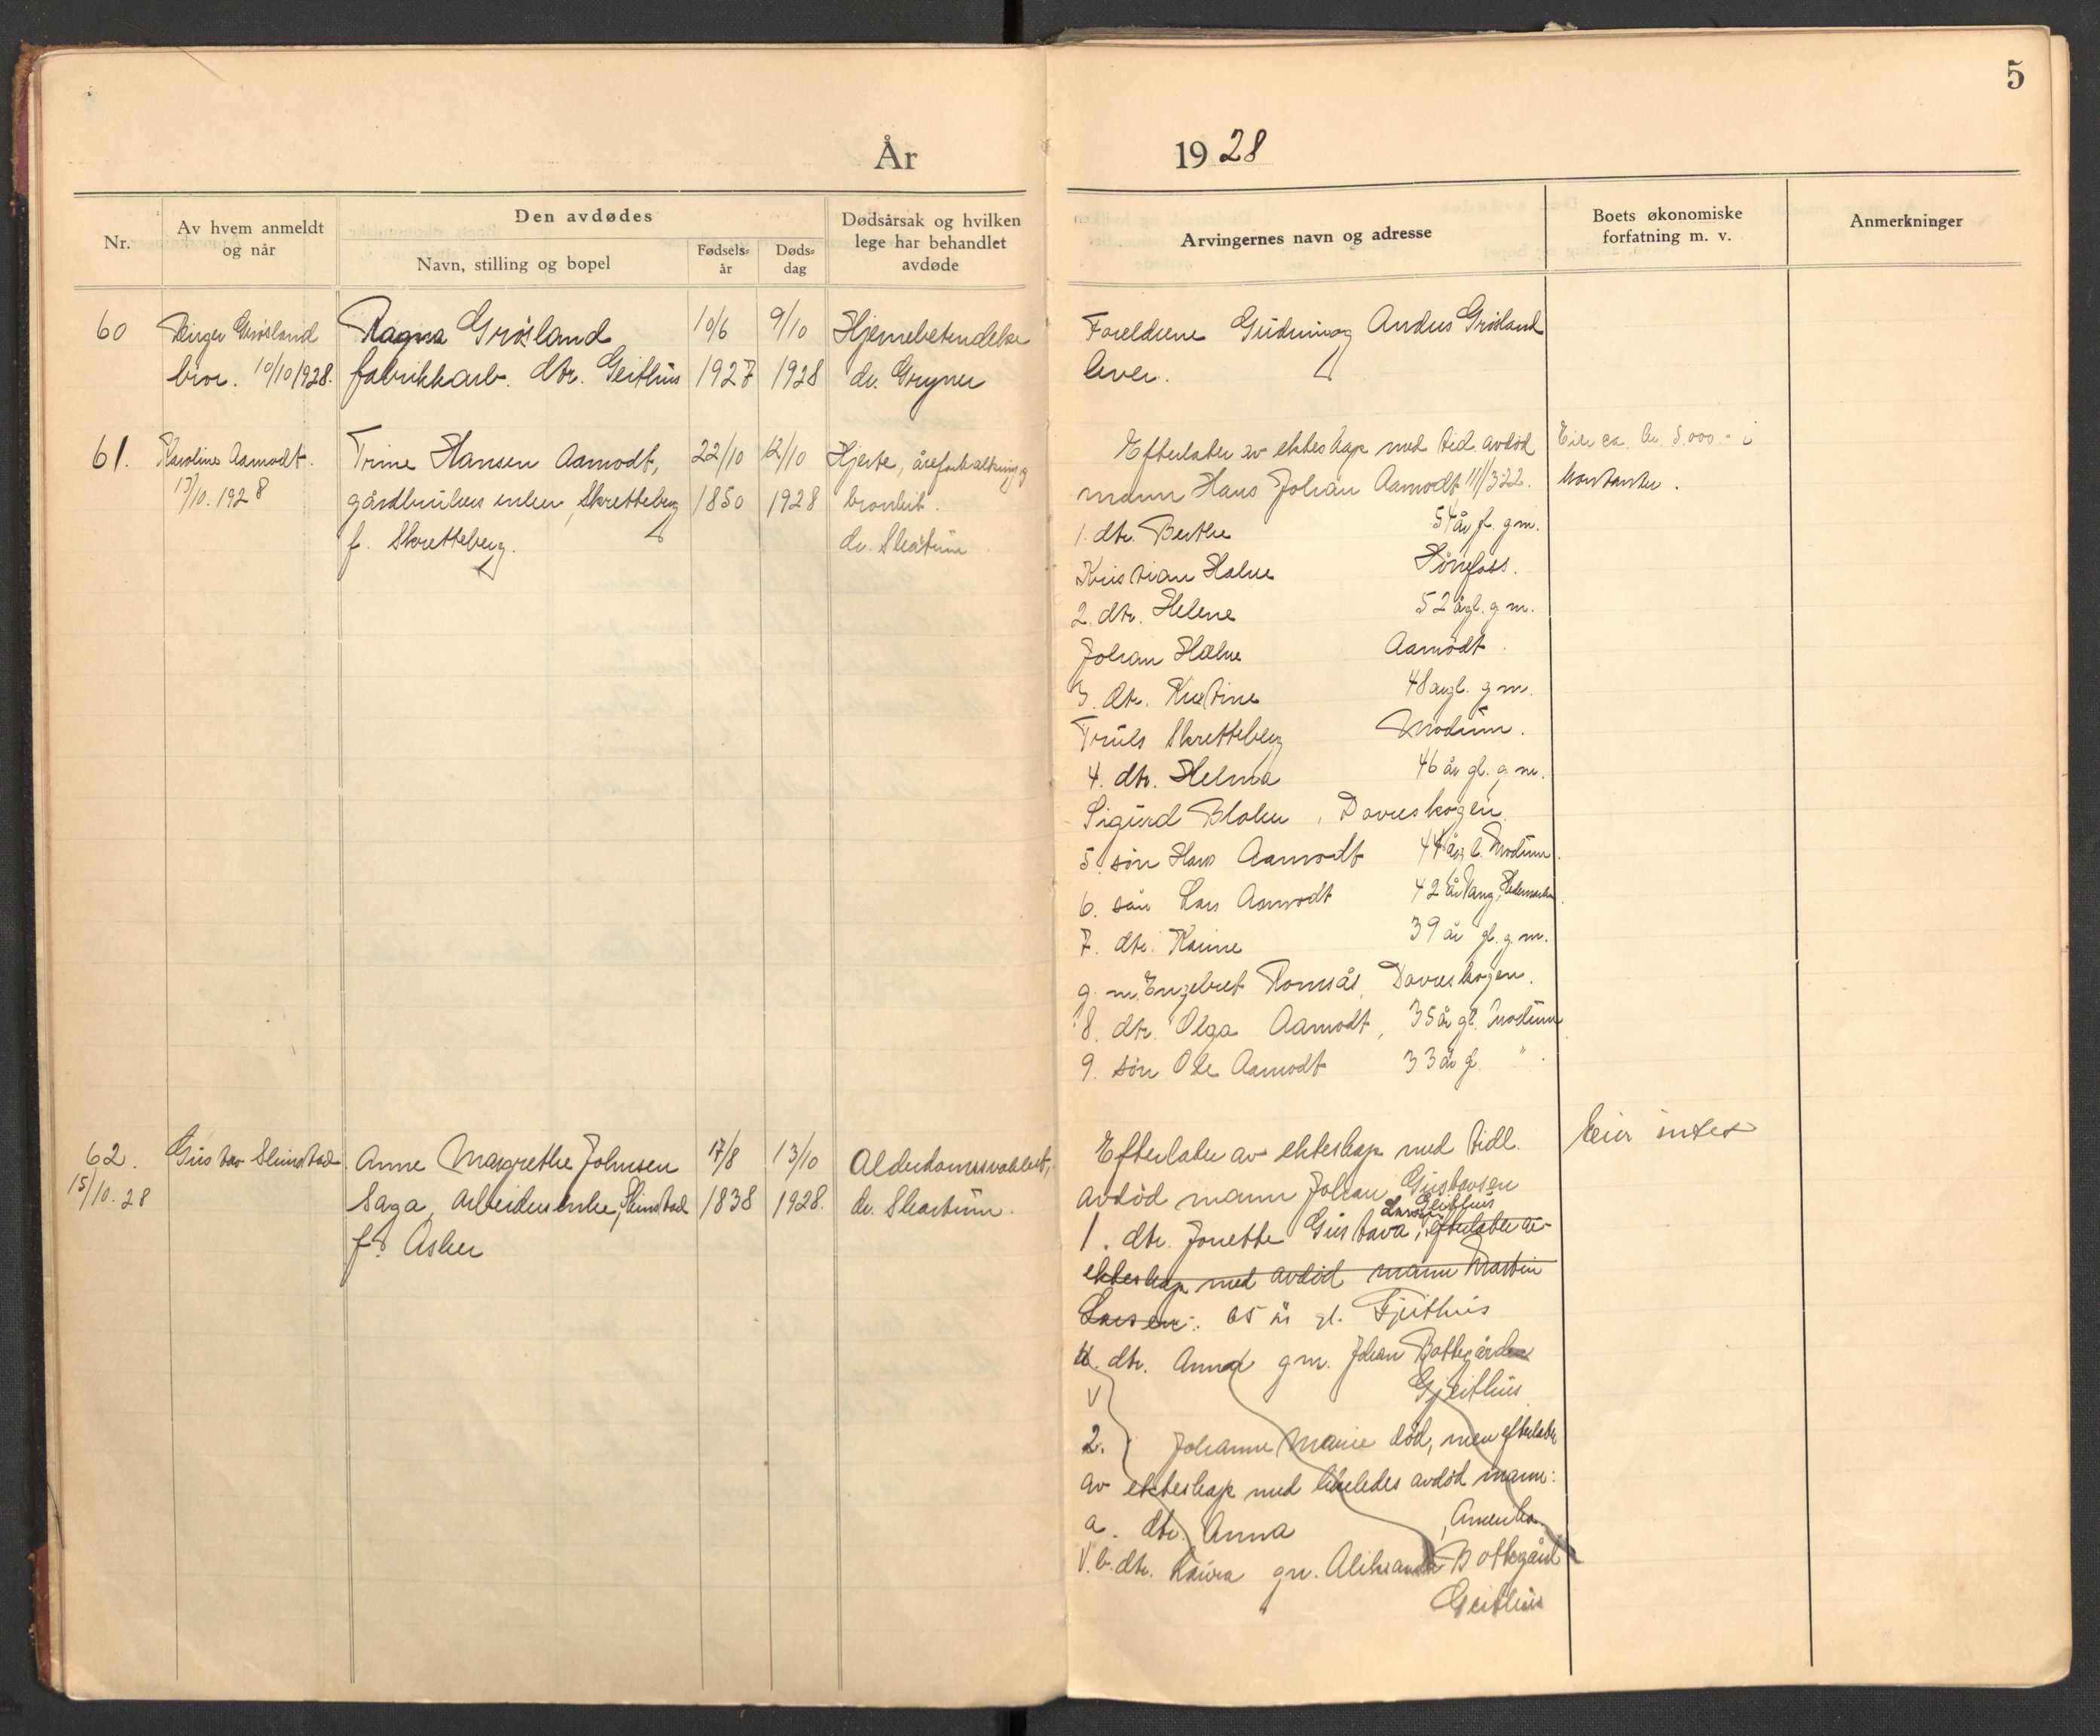 5
År 1928
Nr.
Av hvem anmeldt
og når
Den avdødes
Navn, stilling og bopel
Fødsels-
år
Døds-
dag
Dødsårsak og hvilken
lege har behandlet
avdøde
Arvingernes navn og adresse
Boets økonomiske
forfatning m. v.
Anmerkninger
60 Birger Grøsland Ragna Grøsland 10/6 9/10 Hjernebetendelse Foreldrene Gudrun og Anders Grøsland
bror. 10/10 1928. fabrikkarb. dtr. Geithus 1927 1928 dr. Gryner lever.
61. Karoline Aamodt. Trine Hansen Aamodt, 22/10 12/10 Hjerte, åreforkalkning og
13/10. 1928 gårdbrukers enke, Skretteberg 1850 1928 bronkit.
f. Skretteberg. dr. Skatum
Efterlater av ekteskap med tid. avdød Eier ca. kr. 5.000.- i
mann Hans Johan Aamodt 11/3 22. kontanter.
1. dtr. Berthe 54 år g. g m.
Kristian Holm Hønefoss.
2. dtr. Helene 52 år gl. g m.
Johan Holm Aamodt.
3. dtr. Kristine 48 år gl. g m.
Truls Skretteberg Modum.
4. dtr. Helma 46 år gl. g. m.
Sigurd Bloker, Døvreskogen.
5. søn Hans Aamodt 44 år g. Modum.
6. søn Lars Aamodt 42 år Vang, Hedemarken.
7. dtr. Karine 39 år gl. g m.
g. m. Engebret Komsås, Dovreskogen.
8. dtr. Olga Aamodt, 35 år gl. Modum
9. søn Ole Aamodt 33 år g. " .
62. Gustav Skinstad Anne Margrethe Johnsen 17/8 13/10 Alderdomssvakhet,
15/10. 28 Saga, arbeiderenke, Skinstad 1838 1928. dr. Skatum.
f. Asker
Efterlater av ekteskap med tidl. Eier intet
avdød mann Johan Gustavsen
Larsen Geithus
1. dtr. Jonette Gustava, efterlater av
ekteskap med avdød mann Martin
Larsen: 65 år gl. Gjeithus
dtr. Anna g m. Johan Bottegården
V Gjeithus
2. Johanne Marie død, men efterlater
av ekteskap med likeledes avdød mann:
a. dtr. Anna, Amerika.
V. b. dtr. Laura gm. Aleksander Bottegård
Geithus